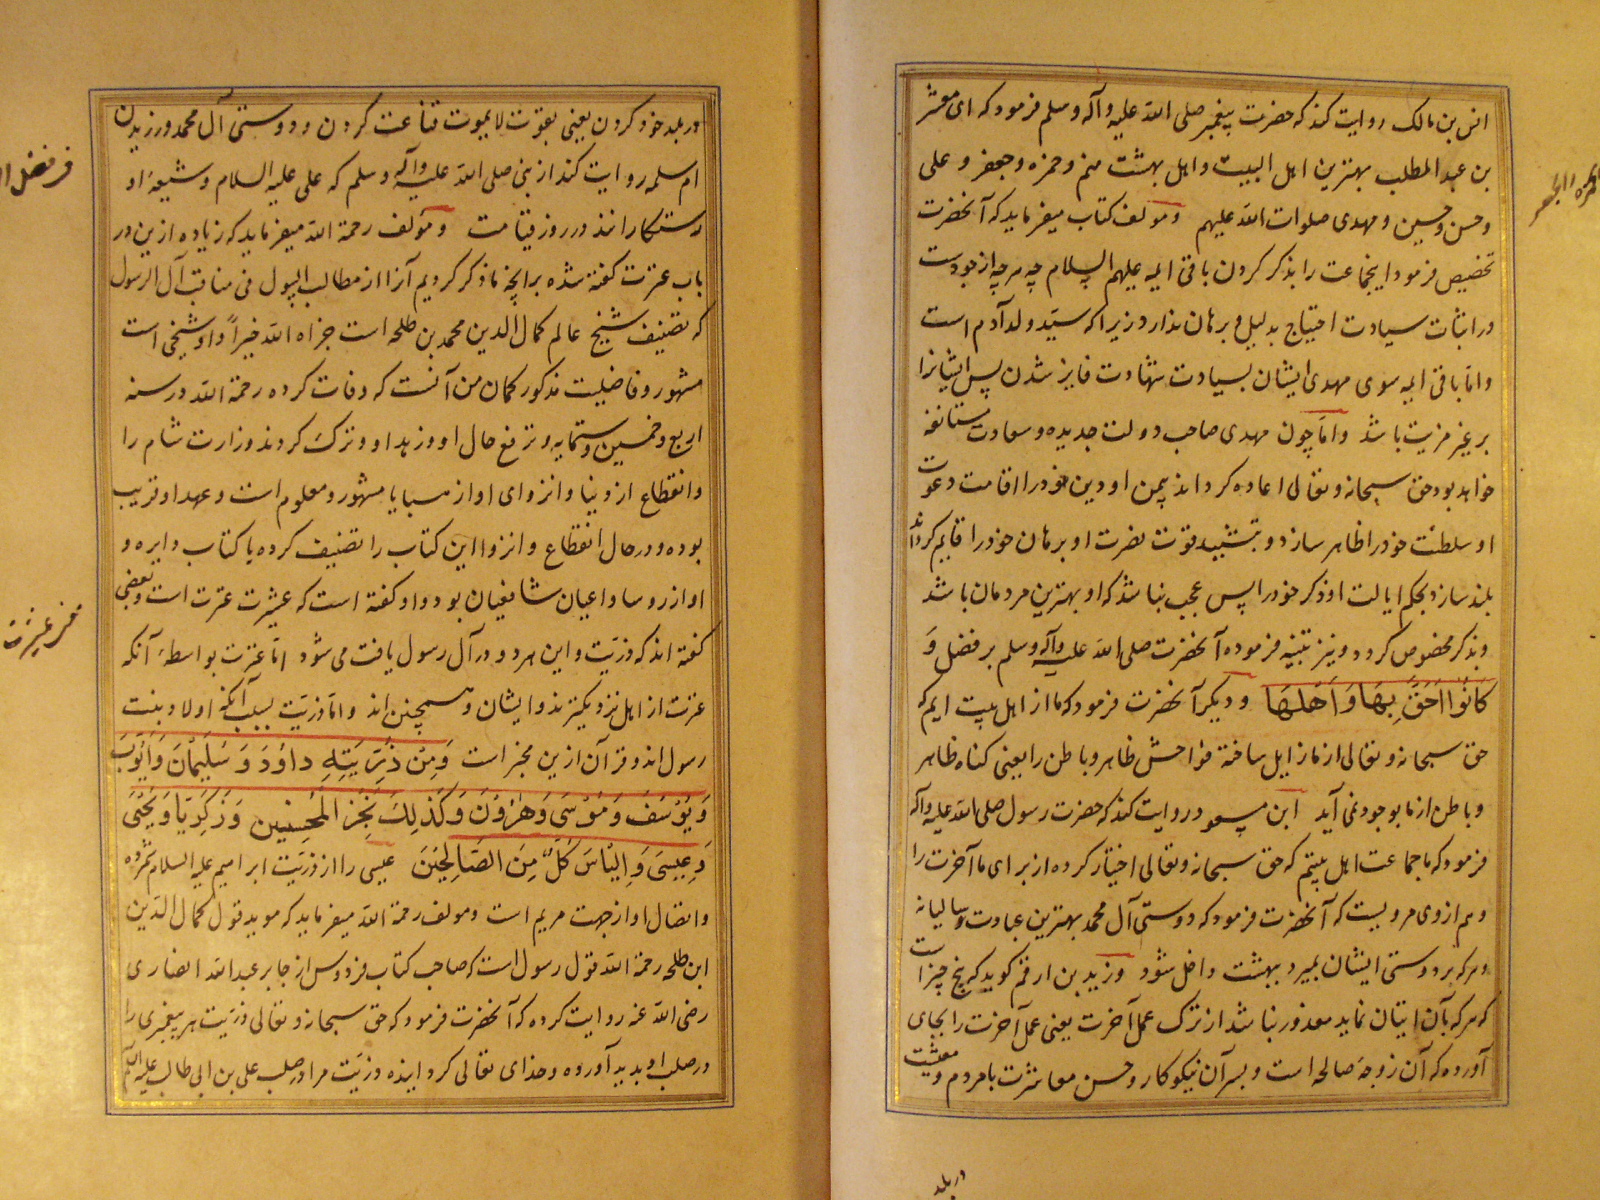 انس بن مالک روایت کند که حضرت پیغمبر صلی الله علیه وآله وسلم فرمود که ای معشر
بن عبد المطلب بهترین اهل البیت واهل بهشت منم وحمزه وجعفر و علی
وحسن وحسین و مهدی صلوات الله علیهم ومؤلف کتاب میفرماید که آنحضرت
تخصیص فرمود اینجماعت را بذکر کردن باقی ایمه علیهم السلام چه هرچه از جودت
در اثبات سیادت احتیاج بدلیل و برهان ندارد زیرا که سید ولد آدم است
واما باقی ایمه سوی مهدی ایشان بسیادت شهادت فایز شدن پس ایشانرا
بر غیر مزیت باشد واما چون مهدی صاحب دولت جدیده و سعادت مستانفه
خواهد بود حق سبحانه وتعالی اعاده کرداند بیمن او دین خود را اقامت دعوت
او سلطنت خود را ظاهر سازد و بتشیید قوت نصرت او برهان خود را قایم کرداند
بلند سازد بحکم ایالت او ذکر خود را پس عجب نباشد که او بهترین مردمان باشد
وبذکر مخصوص کردد ونیز تنبیه فرموده آنحضرت صلی الله علیه وآله وسلم بر فضل و
كَانُوا اَحَقَّ بِهَا وَ اَهْلَهَا ودیکر آنحضرت فرمود که ما از اهل بیت ایم که
حق سبحانه وتعالی از ما زایل ساخته فواحش ظاهر و باطن را یعنی کناه ظاهر
وباطن از ما بوجود نمی آید ابن مسعود روایت کند که حضرت رسول صلی الله علیه وآله
فرمود که ما جماعت اهل بیتیم که حق سبحانه وتعالی اختیار کرده از برای ما آخرت را
وهم از وی مرویست که آنحضرت فرمود که دوستی آل محمد بهترین عبادت سالیانه
وهرکه بر دوستی ایشان بمیرد ببهشت داخل شود وزید بن ارقم کوید که پنج چیز است
که هرکه بآن اتیان نماید معذور نباشد از ترک عمل آخرت یعنی عمل آخرت را بجای
آورده که آن زوجهٔ صالحه است و پسر آن نیکوکار و حسن معاشرت با مردم ومعیشت
در بلد
در بلد خود کردن یعنی بقوت لایموت قناعت کردن و دوستی آل محمد ورزیدن
ام سلمه روایت کند از نبی صلی الله علیه وآله وسلم که علی علیه السلام و شیعهٔ او
رستکارانند در روز قیامت ومؤلف رحمة الله میفرماید که زیاده ازین در
باب عترت کفته شده بر انچه ما ذکر کردیم آنرا از مطالب السول فی مناقب آل الرسول
که تصنیف شیخ عالم کمال الدین محمد بن طلحه است جزاه الله خیراً و او شیخی است
مشهور و فاضلیست مذکور کمان من آنست که وفات کرده رحمة الله در سنه
اربع وخمسین وستمایه و ترفع حال او و زهد او و ترک کردن وزارت شام را
وانقطاع از دنیا و انزوای او از مسایا مشهور و معلوم است و عهد او قریب
بوده و در حال انقطاع وانزوا این کتاب را تصنیف کرده یا کتاب دایره و
او از روسا و اعیان شافعیان بود و او کفته است که عشیرت عترت است وبعضی
کفته اند که ذریت و این هر دو در آل رسول یافت می شود اما عترت بواسطهٔ آنکه
عترت از اهل نزدیکترند و ایشان همچنین اند واما ذریت بسبب آنکه اولاد بنت
رسول اند وقرآن ازین مخبر است وَمِنْ ذُرِّيَّتِهِ دَاوُدَ وَ سُلَيْمَانَ وَ اَيُّوبَ
وَ يُوسُفَ وَ مُوسَى وَ هَارُونَ وَ كَذٰلِكَ نَجْزِى الْمُحْسِنِينَ وَ زَكَرِيَّا وَ يَحْيَى
وَ عِيسَى وَ اِلْيَاسَ كُلٌّ مِنَ الصَّالِحِينَ عیسی را از ذریت ابراهیم علیه السلام شمرده
واتصال او از جهت مریم است ومؤلف رحمة الله میفرماید که موید قول کمال الدین
ابن طلحه رحمة الله قول رسول است که صاحب کتاب فردوس از جابر عبد الله انصاری
رضی الله عنه روایت کرده که آنحضرت فرمود که حق سبحانه وتعالی ذریت هر پیغمبری را
در صلب او پدید آورده وخدای تعالی کردانیده ذریت مرا در صلب علی بن ابی طالب علیه السلام
معنی عشیرت